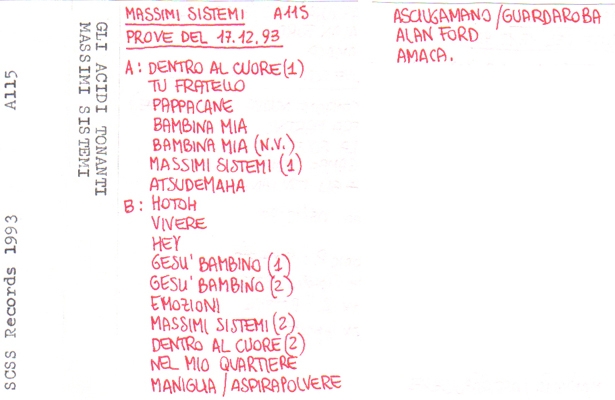 A115
SCSS Records 1993
GLI ACIDI TONANTI
MASSIMI SISTEMI
MASSIMI SISTEMI A115
PROVE DEL 17.12.93
A: DENTRO AL CUORE (1)
TU FRATELLO
PAPPACANE
BAMBINA MIA
BAMBINA MIA (N.V.)
MASSIMI SISTEMI (1)
ATSUDEMAHA
B: HOTOH
VIVERE
HEY
GESU' BAMBINO (1)
GESU' BAMBINO (2)
EMOZIONI
MASSIMI SISTEMI (2)
DENTRO AL CUORE (2)
NEL MIO QUARTIERE
MANIGLIA / ASPIRAPOLVERE
ASCIUGAMANO / GUARDAROBA
ALAN FORD
AMACA.